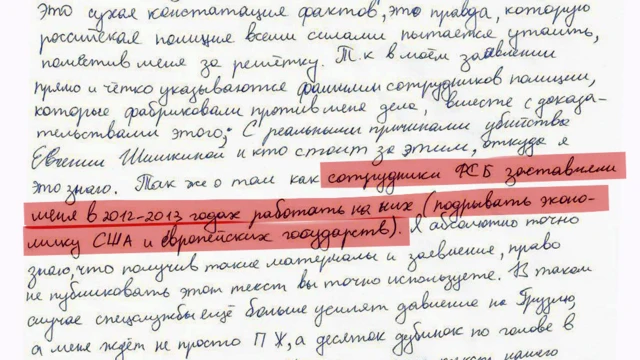 это сухая констатация фактов, это правда, которую
российская полиция всеми силами пытается утаить,
поместив меня за решётку. Т.к в моём заявлении
прямо и чётко указываются фамилии сотрудников полиции,
которые фабриковали против меня дела, вместе с доказа-
тельствами этого; С реальными причинами убийства
Евгении Шишкиной и кто стоит за этим, откуда я
это знаю. Так же о том как сотрудники ФСБ заставляли
меня в 2012-2013 годах работать на них (подрывать эконо-
мику США и европейских государств). Я абсолютно точно
знаю, что получив такие материалы и заявление, право
не публиковать этот текст вы точно используете. В таком
случае спецслужбы ещё больше усилят давление на Грузию,
а меня ждёт не просто П Ж, а десяток дубинок по голове в